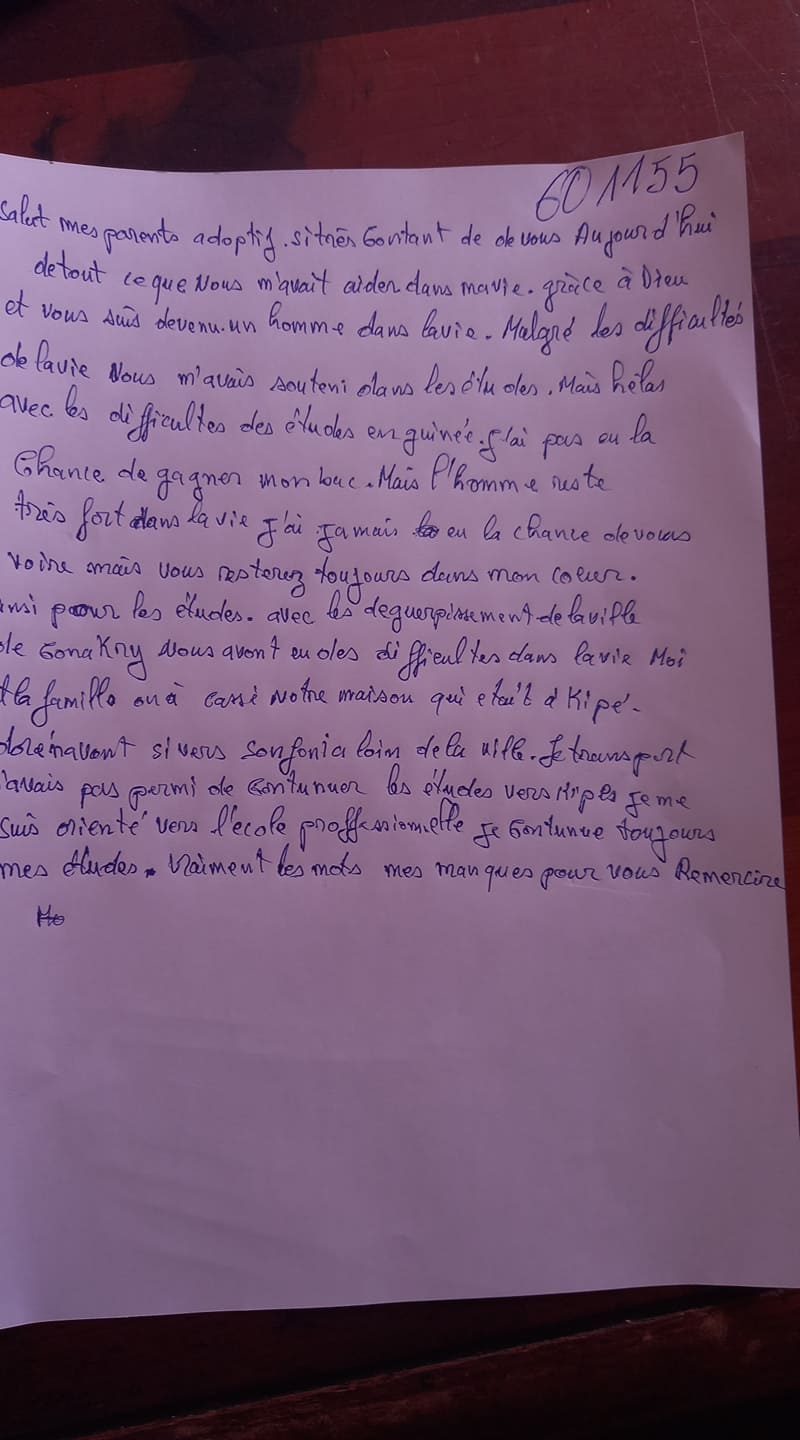 601155
Salut mes parents adoptif. si très Contant de de vous Aujourd'hui
de tout ce que Vous m'avait aider dans ma vie. grâce à Dieu
et vous suis devenu. un homme dans la vie. Malgré les difficultés
de la vie Vous m'avais souteni dans les études. Mais hélas
avec les difficultes des études en guinée. J'ai pas eu la
Chance de gagner mon bac. Mais l'homme reste
très fort dans la vie J'ai Jamais eu la chance de vous
voire mais vous resterez toujours dans mon coeur.
insi pour les études. avec les deguerpissement de la ville
de Conakry Nous avont eu des difficultes dans la vie Moi
la famille on à cassé Notre maison qui etait à Kipé.
dorénavant si vers Sonfonia loin de la ville. Le transport
avais pas permi de Contunuer les études vers Kipé Je me
suis orienté vers l'ecole proffessionnelle Je Contunue toujours
mes études. Vraiment les mots mes manques pour vous Remercire